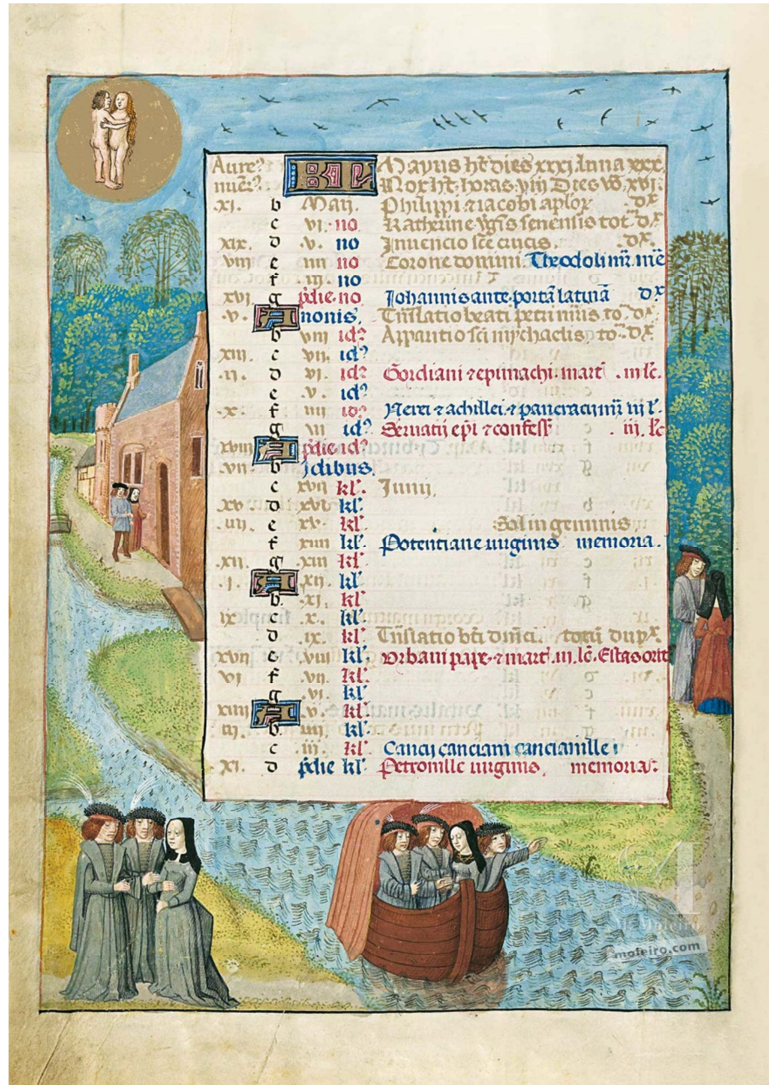 Aure? KL Mayus ht dies xxxi luna xxx.
nuer? Nox ht horas viij Dies vo xvi.
xi. b Maii. Philippi et iacobi aplor. dx
c vi. no Katherine vgis senensis tot. dx
xix. d .v. no Invencio sce crucis. dx.
viii e iiii no Corone domini. Theodoli mr. me
f iii. no
xvi g pdie. no Iohannis ante portam latinam dx
.v. A nonis. Tnslatio beati petri mris to. dx.
b viii id? Apparitio sci mychaelis, to. dx.
xiii. c vii. id?
.ii. d vi. id? Gordiani et epimachi. mart. .iii lc.
e .v. id?
.x. f iiii id? Nerei et achillei et pancracii mr iii l.
g iii id? Servatii epi et confess. .iii. lc
xviii A pdie id?
.vii. b Idibus.
c xvii kl. Iunii,
xv d xvi kl.
.iiii. e xv. kl. Sol in geminis
f xiiii kl. Potentiane virginis memoria.
.xii. g xiii kl.
.i. A xii. kl.
b .xi. kl
ix c .x. kl.
d ix. kl. Tnslatio bti dnici. totum dupx
xvii e viii kl. Urbani pape et mart. iii. lc. Estas orit
vi f vii kl
g .vi. kl.
xiiii A .v. kl.
iii. b iiii kl.
c iii. kl. Cancii canciani cancianille
.xi. d pdie kl. Petronille virginis. memoria.
moleiro.com